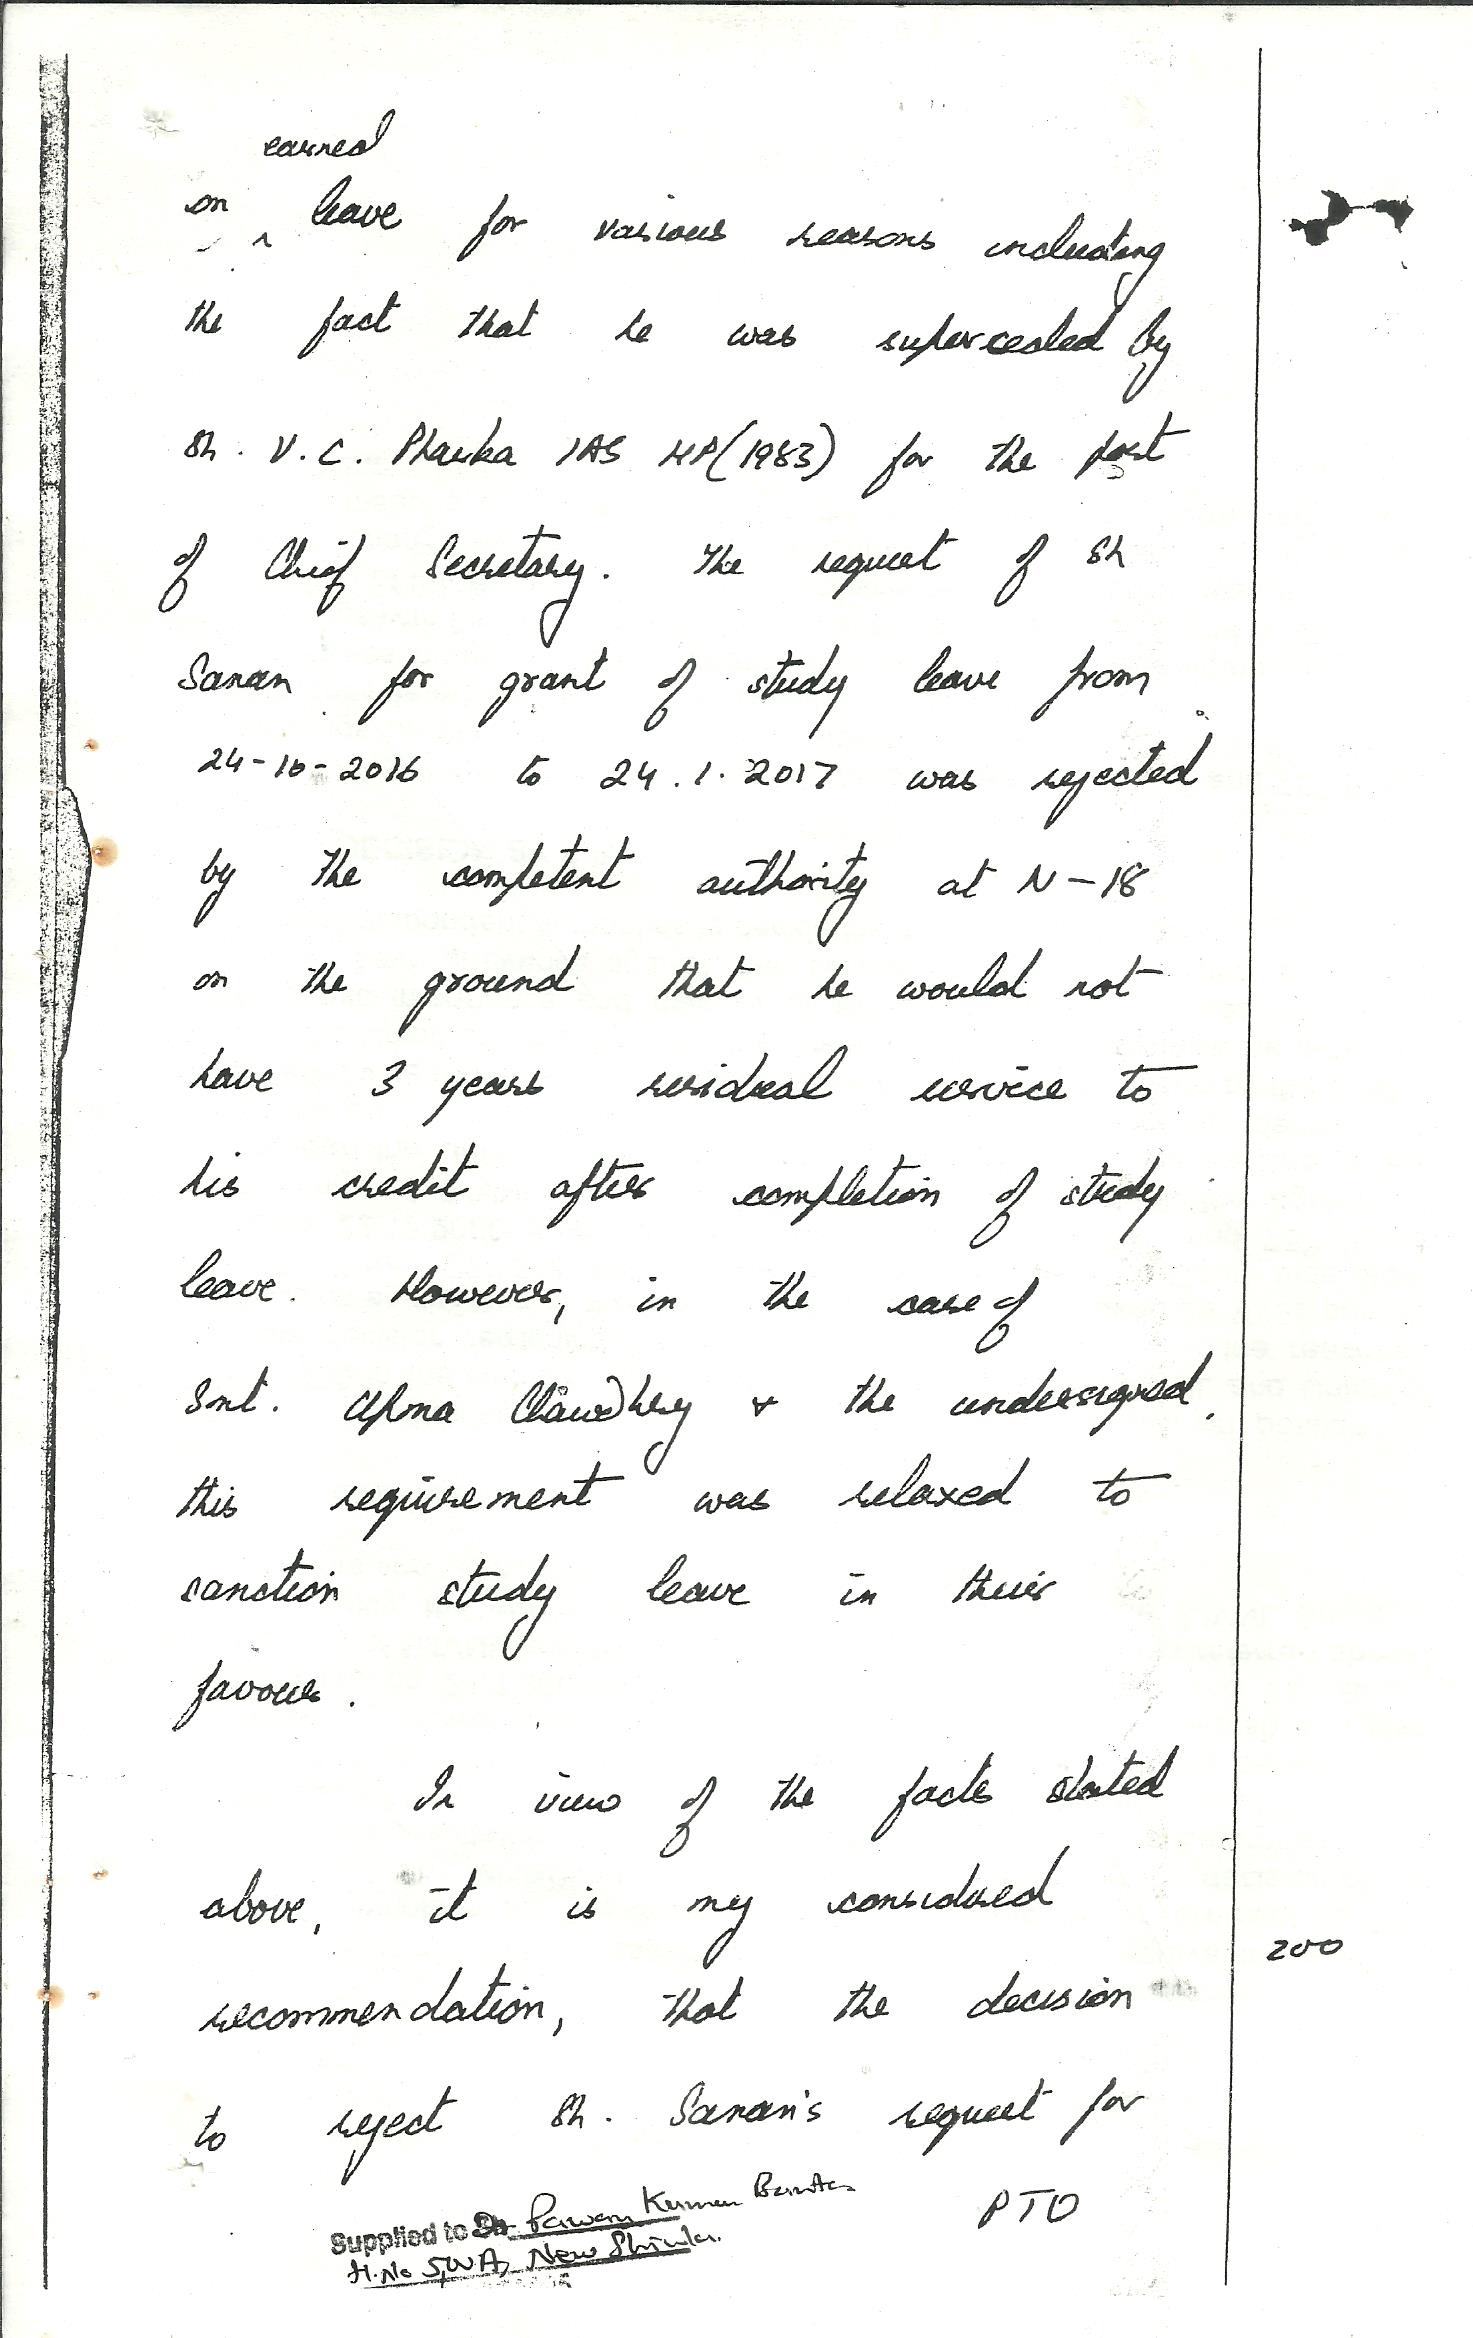 earned
on ^ leave for various reasons including
the fact that he was superceded by
Sh. V.C. Pharka IAS HP(1983) for the post
of Chief Secretary. The request of Sh
Sanan for grant of study leave from
24-10-2016 to 24.1.2017 was rejected
by the competent authority at N-18
on the ground that he would not
have 3 years residual service to
his credit after completion of study
leave. However, in the case of
Smt. Upma Chawdhry & the undersigned,
this requirement was relaxed to
sanction study leave in their
favour.
In view of the facts stated
above, it is my considered
200
recommendation, that the decision
to reject Sh. Sanan's request for
PTO
Supplied to Sh. Pawan Kumar
H.No New Shimla.